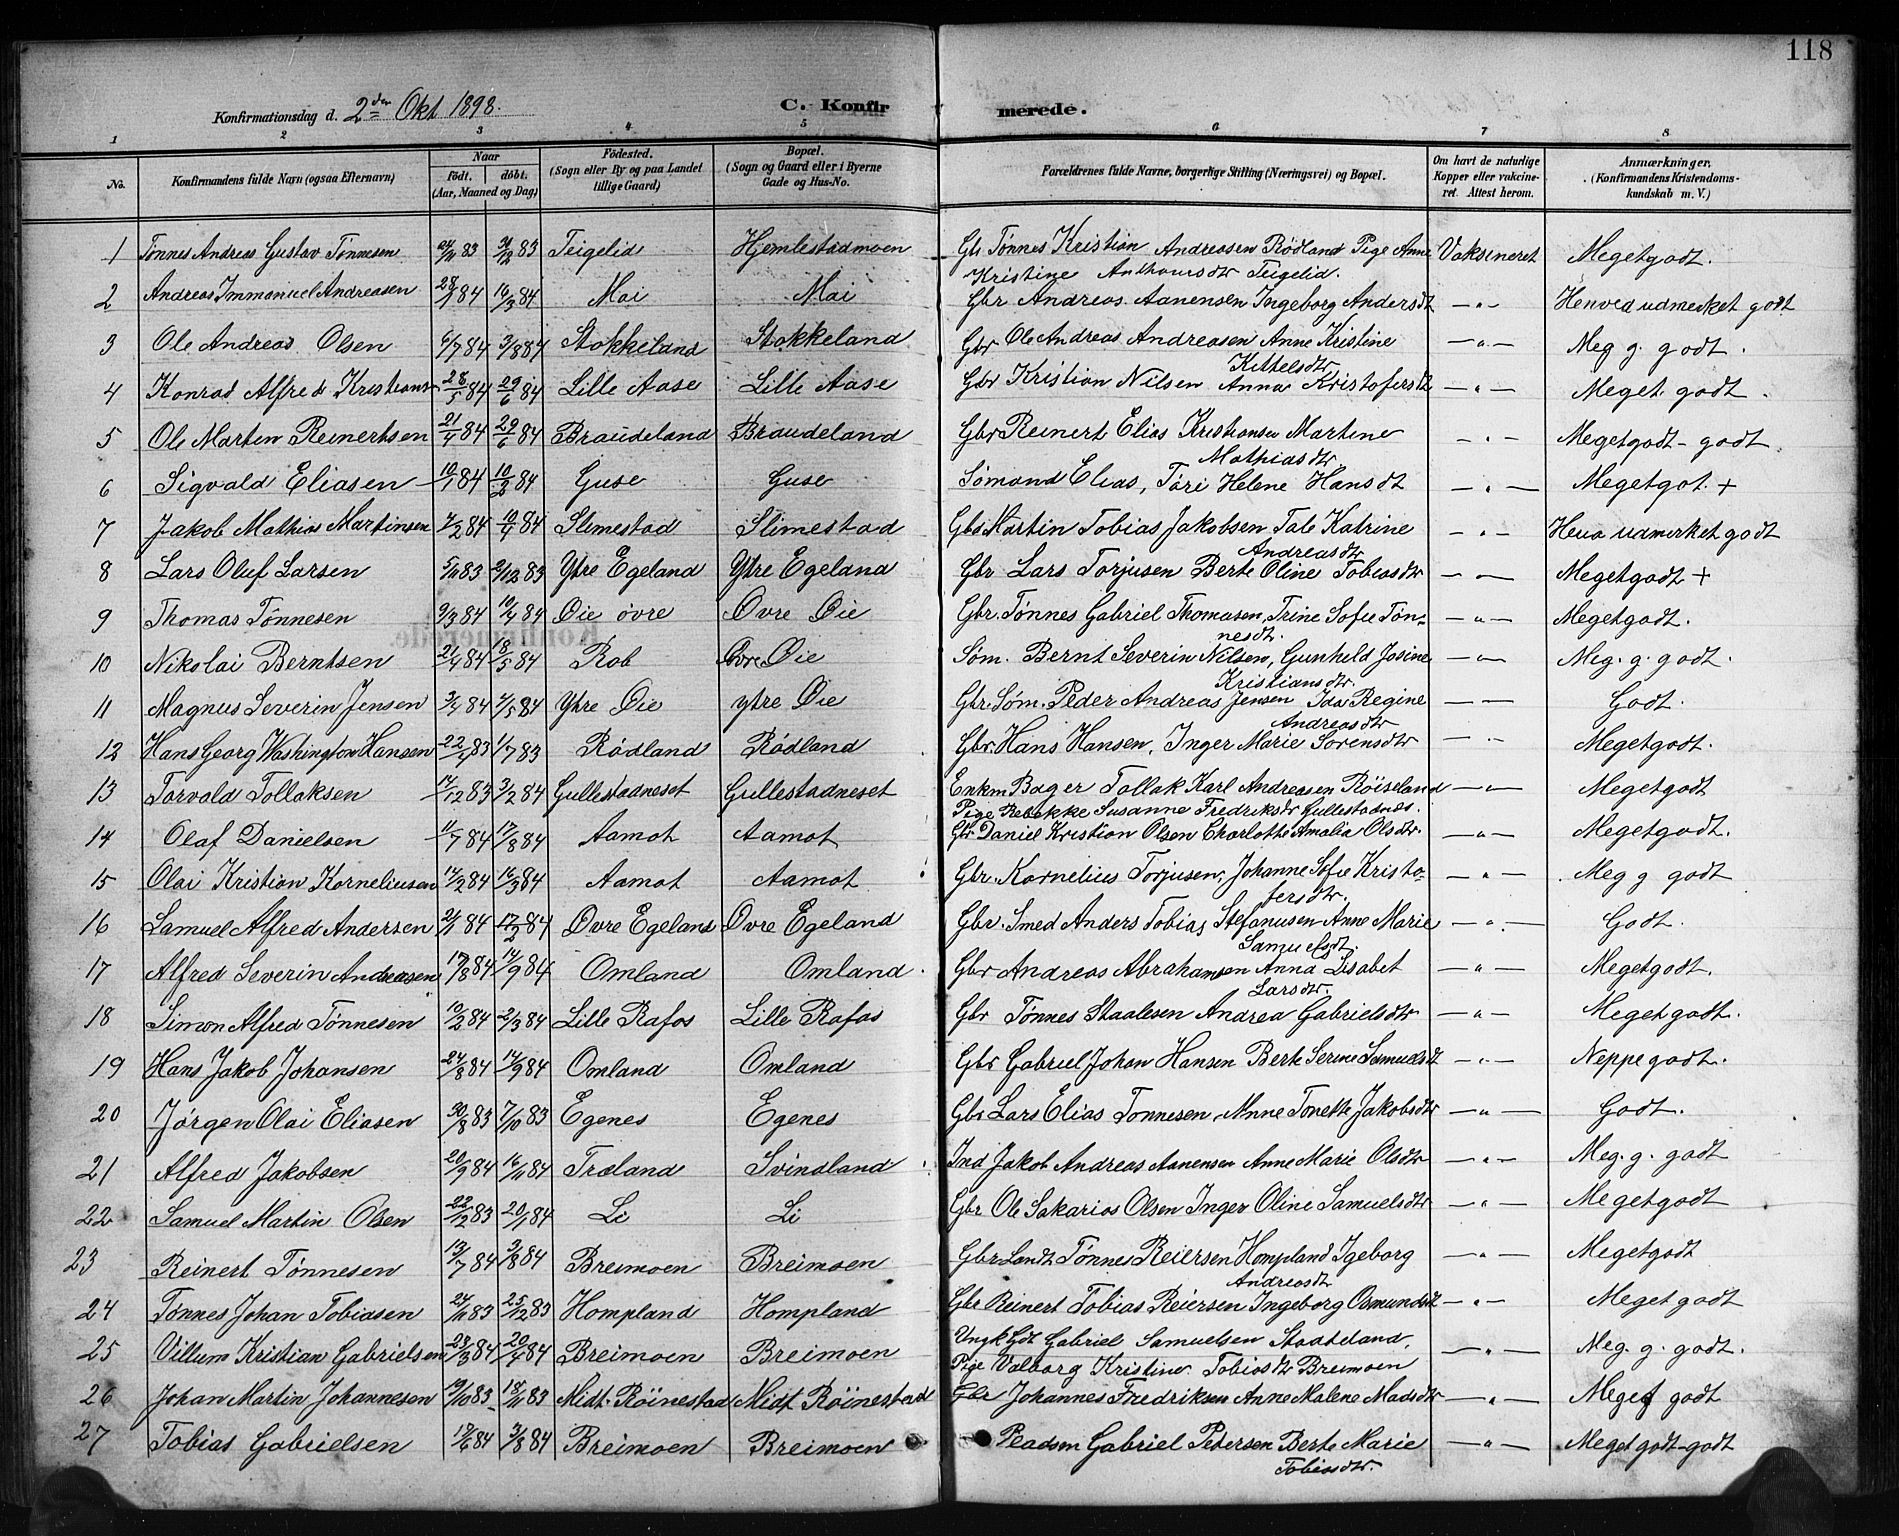 118
Konfirmationsdag d. 2den Okt 1898.
C. Konfirmerede.
1 2 3 4 5 6 7 8
No. Konfirmandens fulde Navn (ogsaa Efternavn) Naar Födt. döbt. (Aar, Maaned og Dag) Födested. (Sogn eller By og paa Landet tillige Gaard) Bopæl. (Sogn og Gaard eller i Byerne Gade og Hus-No. Forældrenes fulde Navne, borgerlige Stilling (Næringsvei) og Bopæl. Om havt de naturlige Kopper eller vakcineret. Attest herom. Anmærkninger. (Konfirmandens Kristendomskundskab m. V.)
1 Tønnes Andreas Gustav Tønnesen 24/11 83 31/12 83 Teigelid Hjemlestadmoen Gbs Tønnes Kristian Andreasen Rødland Pige Anne Vaksineret Megetgodt.
Kristine Anthonsdtr Teigelid.
2 Andreas Immanuel Andreasen 28/1 84 16/3 84 Moi Moi Gbr Andreas Aanensen Ingeborg Andersdt — " — Henved udmerket godt
3 Ole Andreas Olsen 6/7 84 3/8 84 Stokkeland Stokkeland Gbr Ole Andreas Andreasen Anne Kristine — " — Meg g. godt.
Kittelsdtr
4 Konrad Alfred Kristians 28/5 84 29/6 84 Lille Aase Lille Aase Gbr Kristian Nilsen Anna Kristofersdt — " — Meget godt.
5 Ole Marten Reinertsen 21/4 84 29/6 84 Braudeland Braudeland Gbr Reinert Elias Kristiansen Martine — " — Megetgodt - godt
Mathiasdtr
6 Sigvald Eliasen 10/1 84 10/2 84 Guse Guse Sømand Elias, Tøri Helene Hansdt — " — Megetgot. +
7 Jakob Mathias Martinsen 7/2 84 10/4 84 Slimestad Slimestad Gbs Martin Tobias Jakobsen Tale Katrine — " — Henv udmerket godt
Andreasdtr
8 Lars Oluf Larsen 5/11 83 2/12 83 Ytre Egeland Ytre Egeland Gbr Lars Torjusen Berte Oline Tobiasdtr — " — Megetgodt +
9 Thomas Tønnesen 9/3 84 10/4 84 Øie øvre Øvre Øie Gbr. Tønnes Gabriel Thomasen, Trine Sofie Tøn- — " — Megetgodt.
nesdt.
10 Nikolai Berntsen 21/4 84 18/5 84 Rob Øvre Øie Søm. Bernt Severin Nilsen, Gunheld Josine — " — Meg. g. godt.
Kristiansdtr.
11 Magnus Severin Jensen 3/4 84 4/5 84 Ytre Øie ytre Øie Gbr. Søm. Peder Andreas Jensen Ida Regine — — Godt.
Andreasdtr
12 Hans Georg Washington Hansen 22/4 83 1/7 83 Rødland Rødland Gbr. Hans Hansen, Inger Marie Sorensdtr — " — Megetgodt.
13 Torvald Tollaksen 14/12 83 3/2 84 Gullestadneset Gullestadneset Enkm Bager Tollak Karl Andreasen Røiseland — " — Megetgodt
Pige Rebekke Susanne Fredriksdr Gullestadnes.
14 Olaf Danielsen 11/7 84 17/8 84 Aamot Aamot Gbr Daniel Kristian Olsen Charlotte Amalia Olsdtr. — " — Megetgodt.
15 Olai Kristian Korneliusen 14/2 84 16/3 84 Aamot Aamot Gbr. Kornelius Torjusen, Johanne Sofie Kristo- — " — Meg g godt
fersdtr.
16 Samuel Alfred Andersen 2/1 84 17/2 84 Øvre Egeland Øvre Egeland Gbr. Smed Anders Tobias Stefanusen Anne Marie — " — Godt.
Samuelsdt.
17 Alfred Severin Andreasen 17/8 84 14/9 84 Omland Omland. Gbr Andreas Abrahamsen Anna Lisabet — " — Megetgodt.
Larsdtr.
18 Simon Alfred Tønnesen 10/2 84 2/3 84 Lille Rafos Lille Rafos Gbr Tønnes Staalesen Andrea Gabrielsdtr — " — Megetgodt.
19 Hans Jakob Johansen 24/8 84 14/9 84 Omland Omland Gbs Gabriel Johan Hansen Berte Serine Samuelsdt — " — Neppe godt.
20 Jørgen Olai Eliasen 30/8 83 7/10 83 Egenes Egenes Gbs Lars Elias Tonnesen, Anne Tonette Jakobsdtr — " — Godt.
21 Alfred Jakobsen 20/9 84 16/11 84 Træland Svindland Ind Jakob Andreas Aanensen Anne Marie Olsdtr — " — Meg. g. godt
22 Samuel Martin Olsen 22/12 83 20/1 84 Li Li Gbr Ole Sakarias Olsen Inger Oline Samuelsdtr — " — Megetgodt
23 Reinert Tønnesen 13/7 84 3/8 84 Breimoen Breimoen Gbr Tønnes Reiersen Hompland Igeborg — " — Megetgodt
Andreasdt
24 Tønnes Johan Tobiasen 24/11 83 25/12 83 Hompland Hompland Gbr Reinert Tobias Reiersen Ingeborg Osmundsdt — " — Meget godt
25 Villum Kristian Gabrielsen 23/3 84 20/4 84 Breimoen Breimoen Ungk Gdt Gabriel Samuelsen Staddeland, — " — Meg. g. godt.
Pige Valborg Kristine Tobiasdtr Breimoen
26 Johan Martin Johannesen 19/10 83 18/11 83 Midt-Røinestad Midt Røinestad Gbr Johannes Fredriksen Anne Malene Madsdtr — " — Meget godt
27 Tobias Gabrielsen 17/6 84 3/8 84 Breimoen Breimoen Pladsm Gabriel Petersen Berte Marie — " — Meget godt-godt
Tobiasdtr.